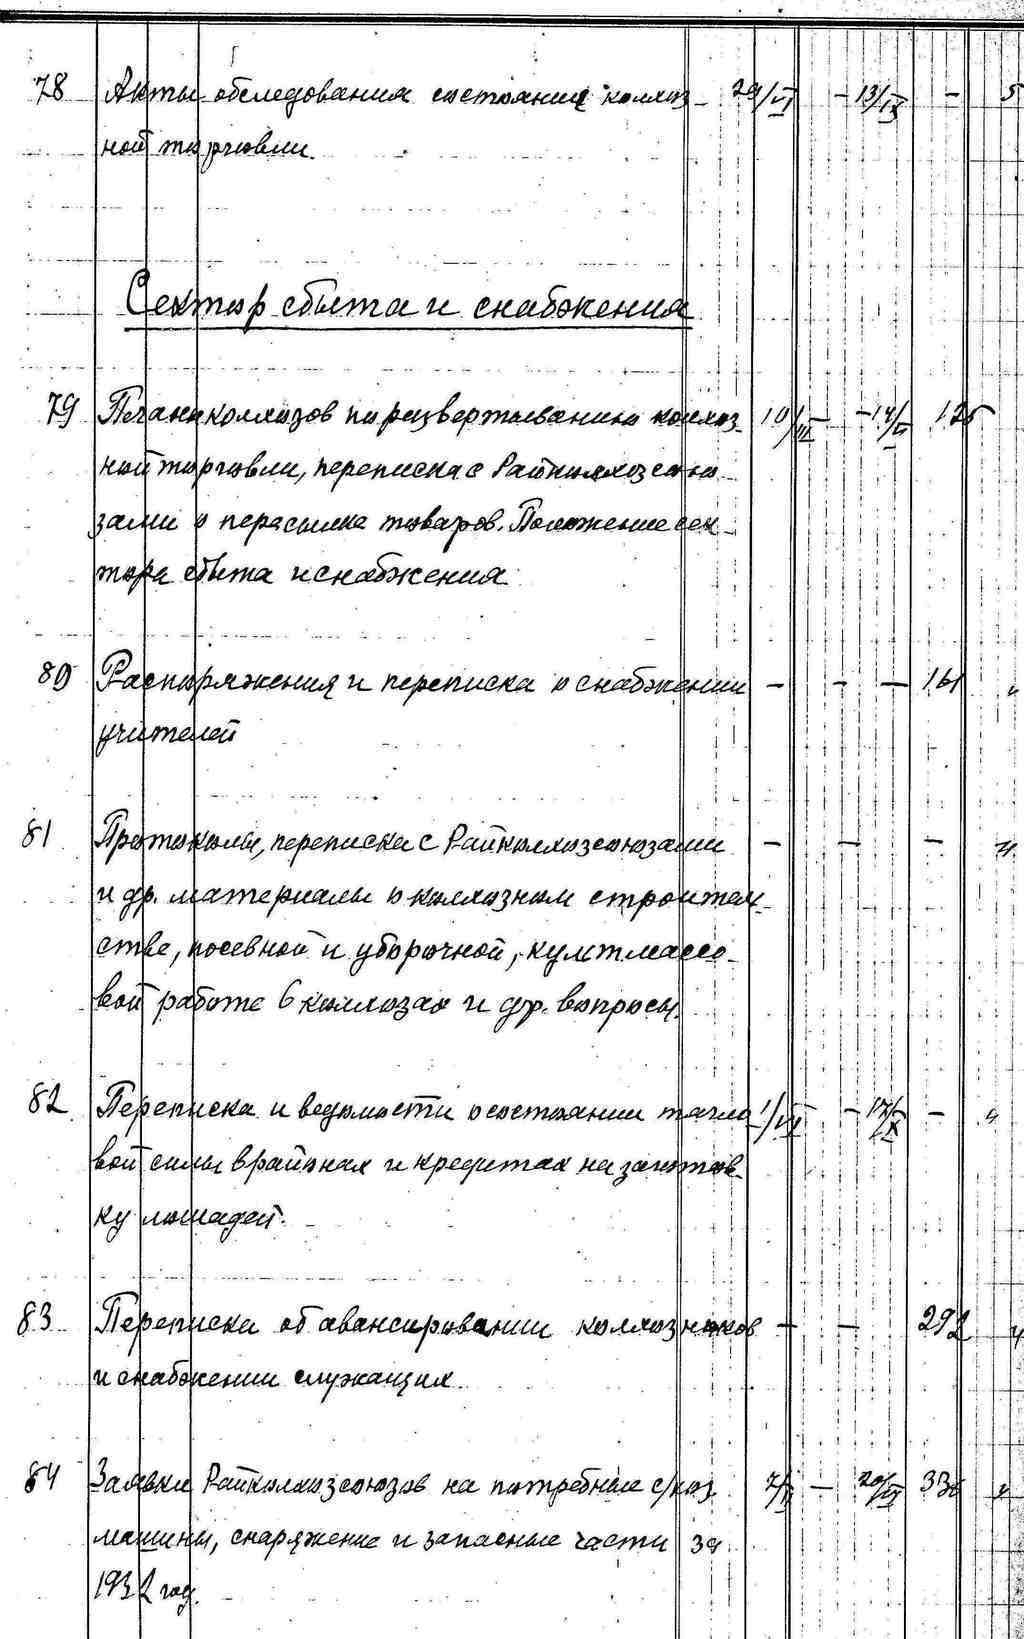 78 Акты обследования состояния колхоз- 29/VI - 13/IX - 5
ной торговли.
Сектор сбыта и снабжения
79 Планы колхозов по развертыванию колхоз- 10/III - 14/ 125
ной торговли, переписка с Райколхозсою
зами о пересылке товаров. Положение сек-
тора сбыта и снабжения
80 Распоряжения и переписка о снабжении - - - 161 "
учителей
81 Протоколы, переписка с Райколхозсоюзами - - - "
и др. материалы о колхозном строитель-
стве, посевной и уборочной, культмассо-
вой работе в колхозах и др. вопросы.
82 Переписка и ведомости о состоянии тягло 1/VII - 17/X - "
вой силы в районах и кредитах на заготов-
ку лошадей.
83 Переписка об авансировании колхозников - - 292 "
и снабжении служащих
84 Заявки Райколхозсоюзов на потребные с/хоз 7/II - 20/ 336 "
машины, снаряжение и запасные части за
1932 год.